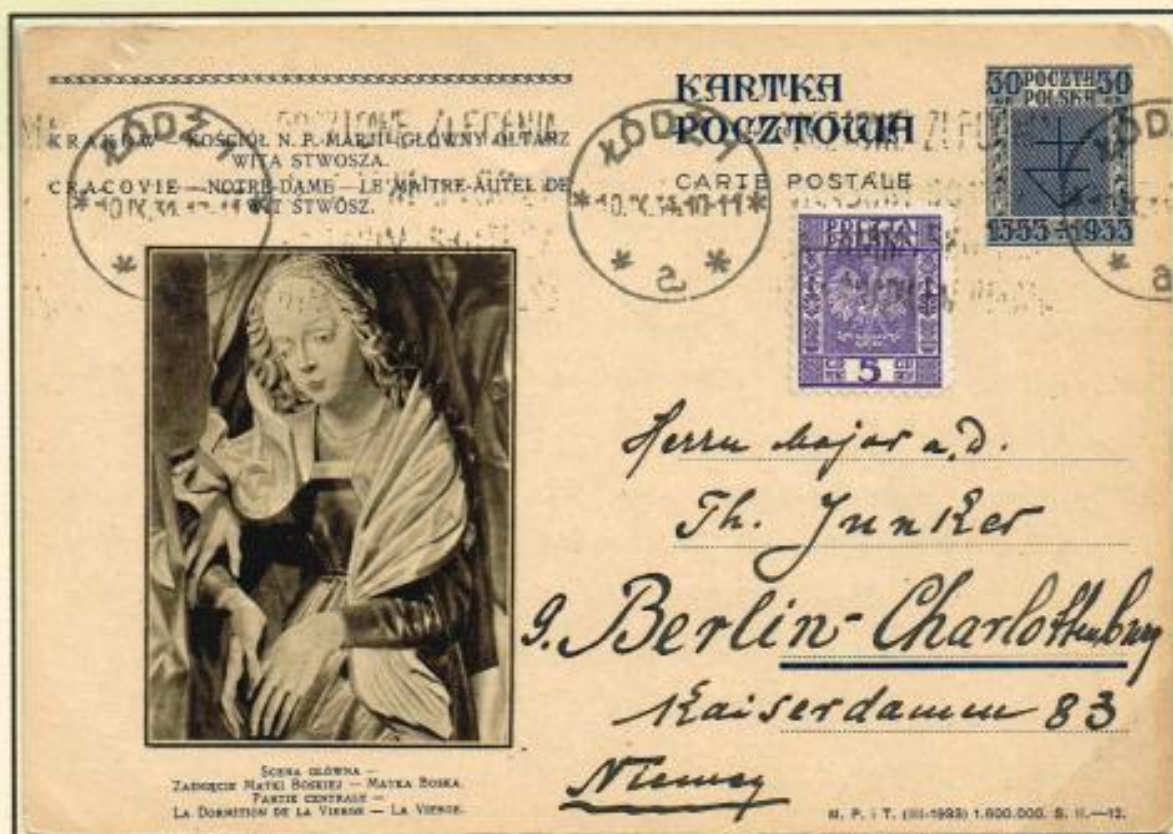 KRAKÓW — KOŚCIÓŁ N. P. MARJI — GŁÓWNY OŁTARZ
WITA STWOSZA.
CRACOVIE — NOTRE-DAME — LE MAÎTRE-AUTEL DE
WIT STWOSZ.
KARTKA
POCZTOWA
CARTE POSTALE
30 POCZTA 30
POLSKA
1533 1933
ŁÓDŹ 1
ŁÓDŹ 1
10.IX.34.10-11
a
ŁÓDŹ
a
POCZTA
POLSKA
5
Herrn Major a.D.
Th. Junker
Berlin-Charlottenburg
Kaiserdamm 83
Niemcy
SCENA GŁÓWNA —
ZAŚNIĘCIE MATKI BOSKIEJ — MATKA BOSKA.
PARTIE CENTRALE —
LA DORMITION DE LA VIERGE — LA VIERGE.
M. P. i T. (III-1933) 1.600.000. S. II.—12.